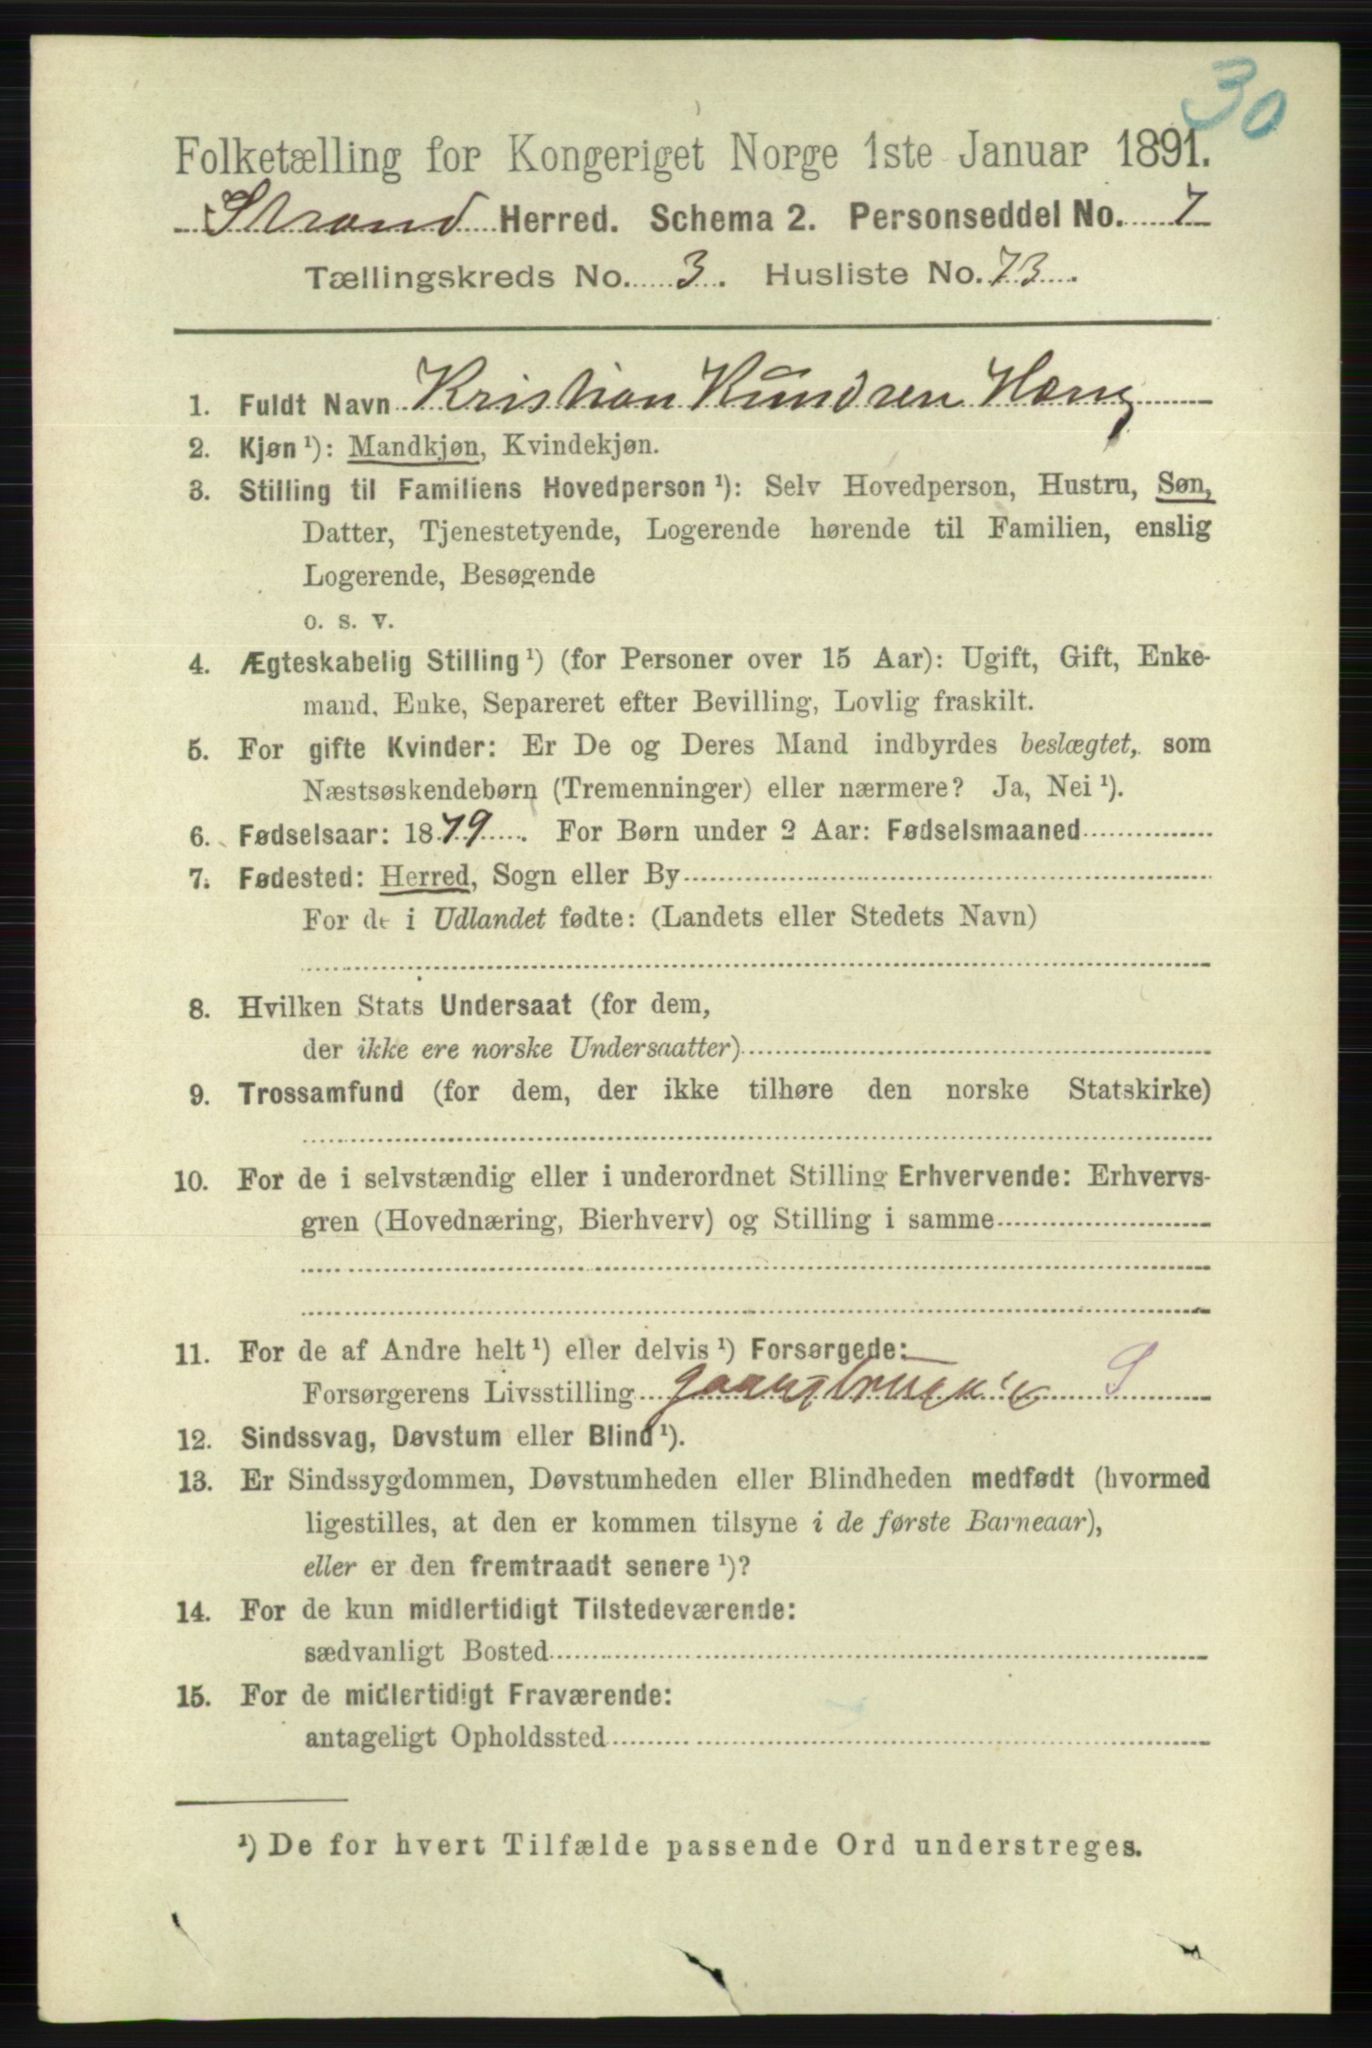 30
Folketælling for Kongeriget Norge 1ste Januar 1891.
Strand Herred. Schema 2. Personseddel No. 7
Tællingskreds No. 3. Husliste No. 73.
1. Fuldt Navn Kristian Knudsen
2. Kjøn ¹): Mandkjøn, Kvindekjøn.
3. Stilling til Familiens Hovedperson ¹): Selv Hovedperson, Hustru, Søn,
Datter, Tjenestetyende, Logerende hørende til Familien, enslig
Logerende, Besøgende
o. s. v.
4. Ægteskabelig Stilling ¹) (for Personer over 15 Aar): Ugift, Gift, Enke-
mand, Enke, Separeret efter Bevilling, Lovlig fraskilt.
5. For gifte Kvinder: Er De og Deres Mand indbyrdes beslægtet, som
Næstsøskendebørn (Tremenninger) eller nærmere? Ja, Nei ¹).
6. Fødselsaar: 1879. For Børn under 2 Aar: Fødselsmaaned
7. Fødested: Herred, Sogn eller By
For de i Udlandet fødte: (Landets eller Stedets Navn)
8. Hvilken Stats Undersaat (for dem,
der ikke ere norske Undersaatter)
9. Trossamfund (for dem, der ikke tilhøre den norske Statskirke)
10. For de i selvstændig eller i underordnet Stilling Erhvervende: Erhvervs-
gren (Hovednæring, Bierhverv) og Stilling i samme
11. For de af Andre helt ¹) eller delvis ¹) Forsørgede:
Forsørgerens Livsstilling S
12. Sindssvag, Døvstum eller Blind ¹).
13. Er Sindssygdommen, Døvstumheden eller Blindheden medfødt (hvormed
ligestilles, at den er kommen tilsyne i de første Barneaar),
eller er den fremtraadt senere ¹)?
14. For de kun midlertidigt Tilstedeværende:
sædvanligt Bosted
15. For de midlertidigt Fraværende:
antageligt Opholdssted
¹) De for hvert Tilfælde passende Ord understreges.